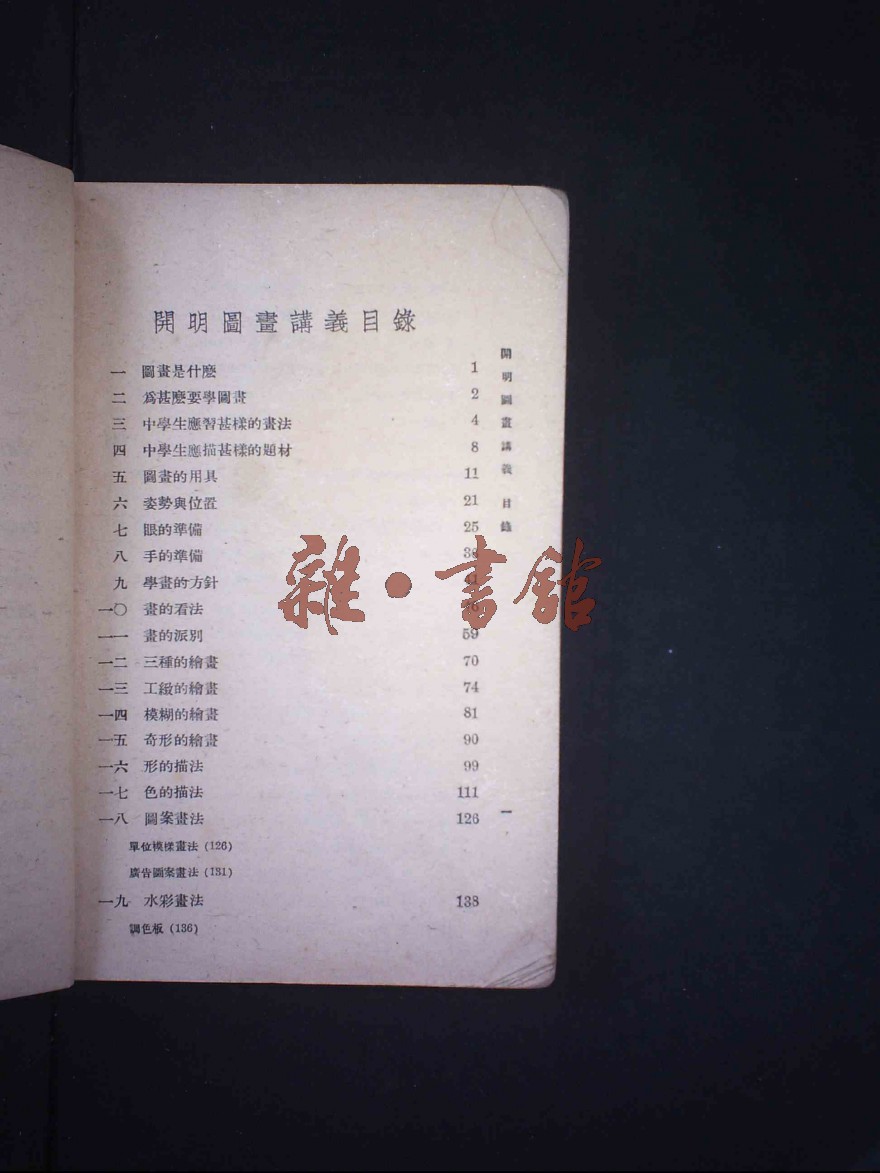 開明圖畫講義目錄
一 圖畫是什麽 1
二 爲甚麽要學圖畫 2
三 中學生應習甚樣的畫法 4
四 中學生應描甚樣的題材 8
五 圖畫的用具 11
六 姿勢與位置 21
七 眼的準備 25
八 手的準備
九 學畫的方針
一〇 畫的看法
一一 畫的派別 59
一二 三種的繪畫 70
一三 工緻的繪畫 74
一四 模糊的繪畫 81
一五 奇形的繪畫 90
一六 形的描法 99
一七 色的描法 111
一八 圖案畫法 126
單位模樣畫法 (126)
廣告圖案畫法 (131)
一九 水彩畫法 138
調色板 (136)
開明圖畫講義 目錄
一
雜·書館